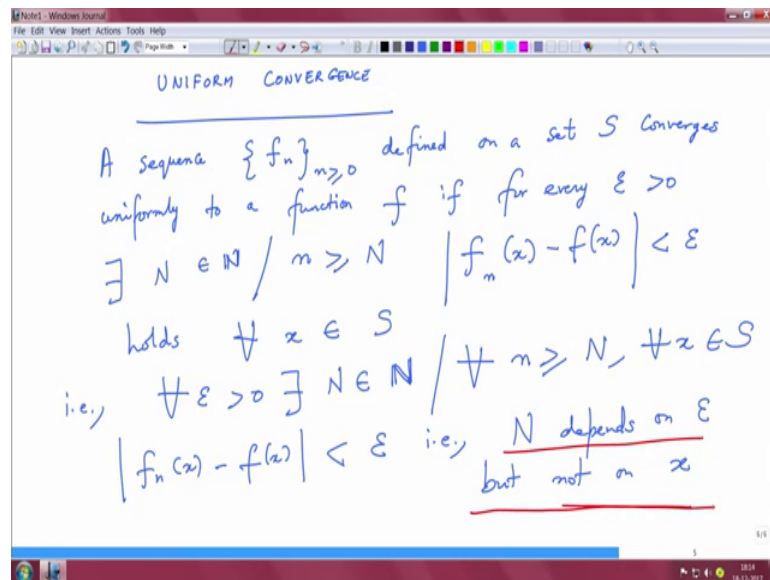 Note1 - Windows Journal
File Edit View Insert Actions Tools Help
Page Width
UNIFORM CONVERGENCE
A sequence {f_n}_{n≥0} defined on a set S converges
uniformly to a function f if for every ε > 0
∃ N ∈ ℕ / n ≥ N |f_n(x) - f(x)| < ε
holds ∀ x ∈ S
i.e., ∀ ε > 0 ∃ N ∈ ℕ / ∀ n ≥ N, ∀ x ∈ S
|f_n(x) - f(x)| < ε i.e., N depends on ε
but not on x
6/6
5
18:14